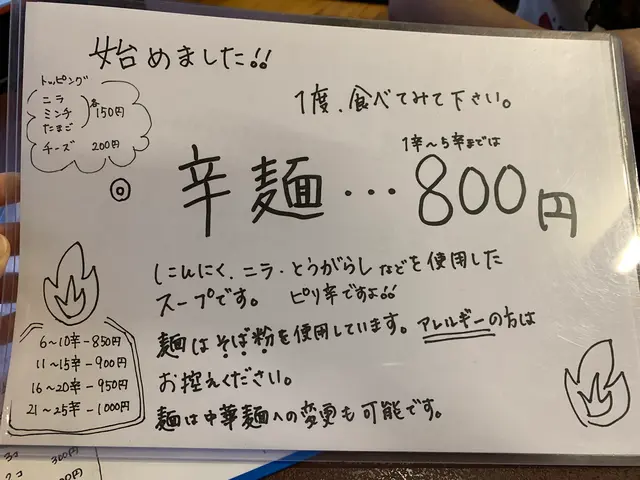 始めました!!
トッピング
ニラ
ミンチ
たまご
各150円
チーズ 200円
1度、食べてみて下さい。
1辛～5辛までは
辛麺…800円
にんにく、ニラ・とうがらしなどを使用した
スープです。 ピリ辛ですよ!!
麺はそば粉を使用しています。アレルギーの方は
お控えください。
麺は中華麺への変更も可能です。
6～10辛-850円
11～15辛-900円
16～20辛-950円
21～25辛-1000円
300円